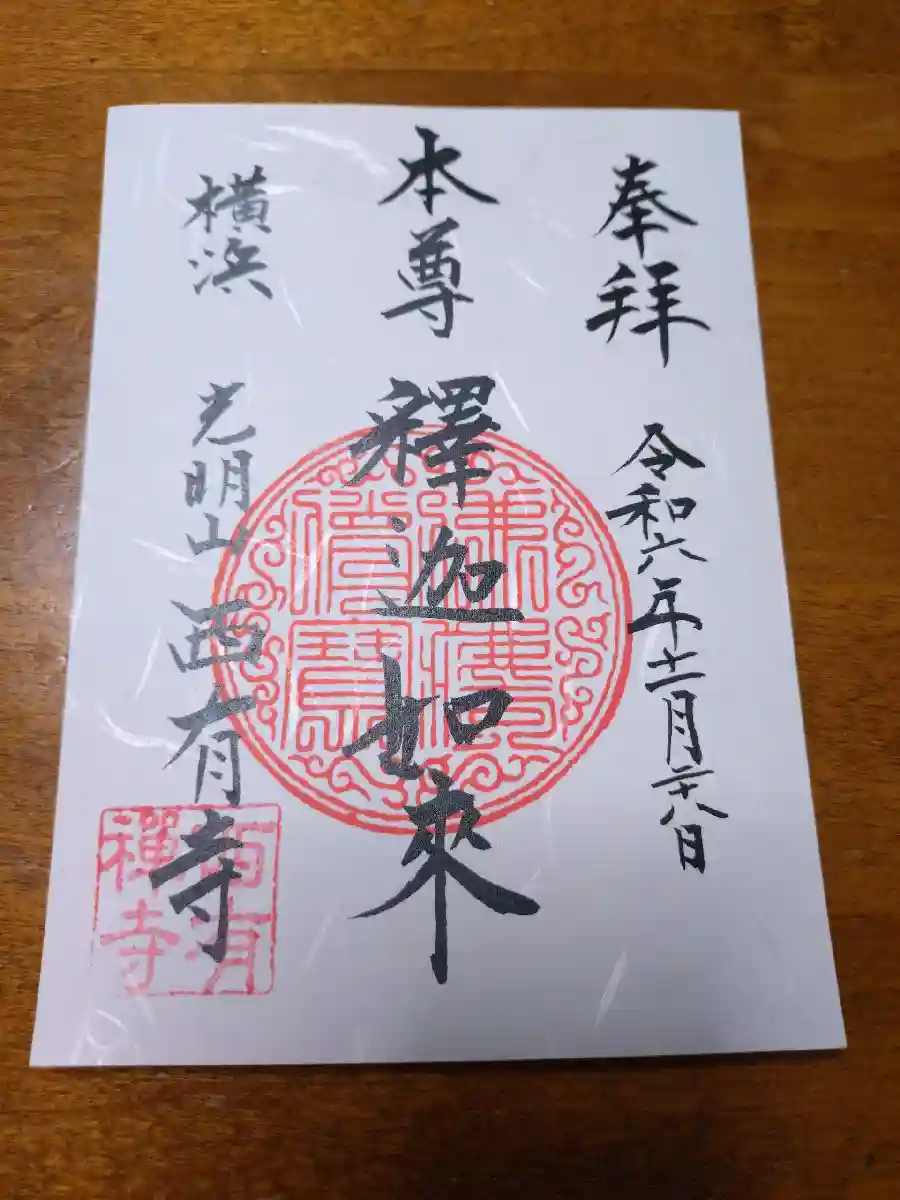 奉拝 令和六年十一月二十八日
本尊 釋迦如來
横浜 光明山 西有寺
西有
禪寺